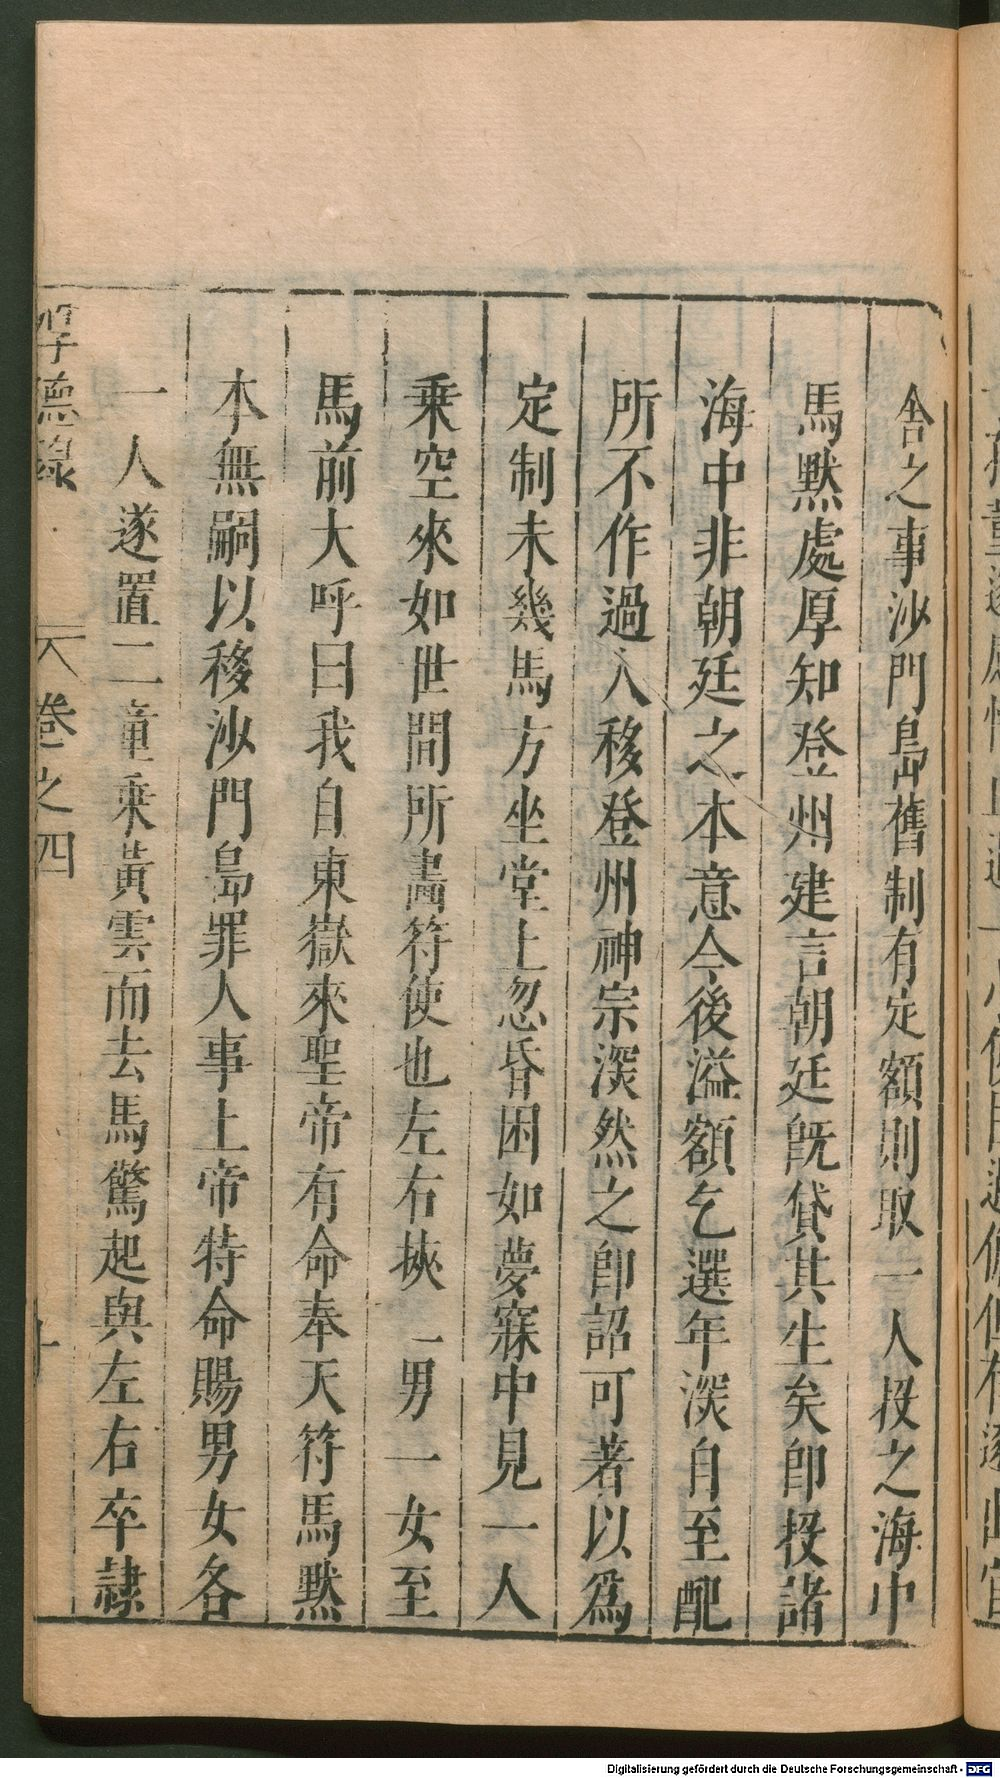 舍之事沙門島舊制有定額則取一人投之海中
馬默處厚知登州建言朝廷旣貸其生矣卽投諸
海中非朝廷之本意今後溢額乞選年深自至配
所不作過人移登州神宗深然之卽詔可著以爲
定制未幾馬方坐堂上忽昏困如夢寐中見一人
乘空來如世間所畵符使也左右挾一男一女至
馬前大呼曰我自東嶽來聖帝有命奉天符馬默
本無嗣以移沙門島罪人事上帝特命賜男女各
一人遂置二童乘黃雲而去馬驚起與左右卒隷
厚德錄 卷之四 十
Digitalisierung gefördert durch die Deutsche Forschungsgemeinschaft - DFG